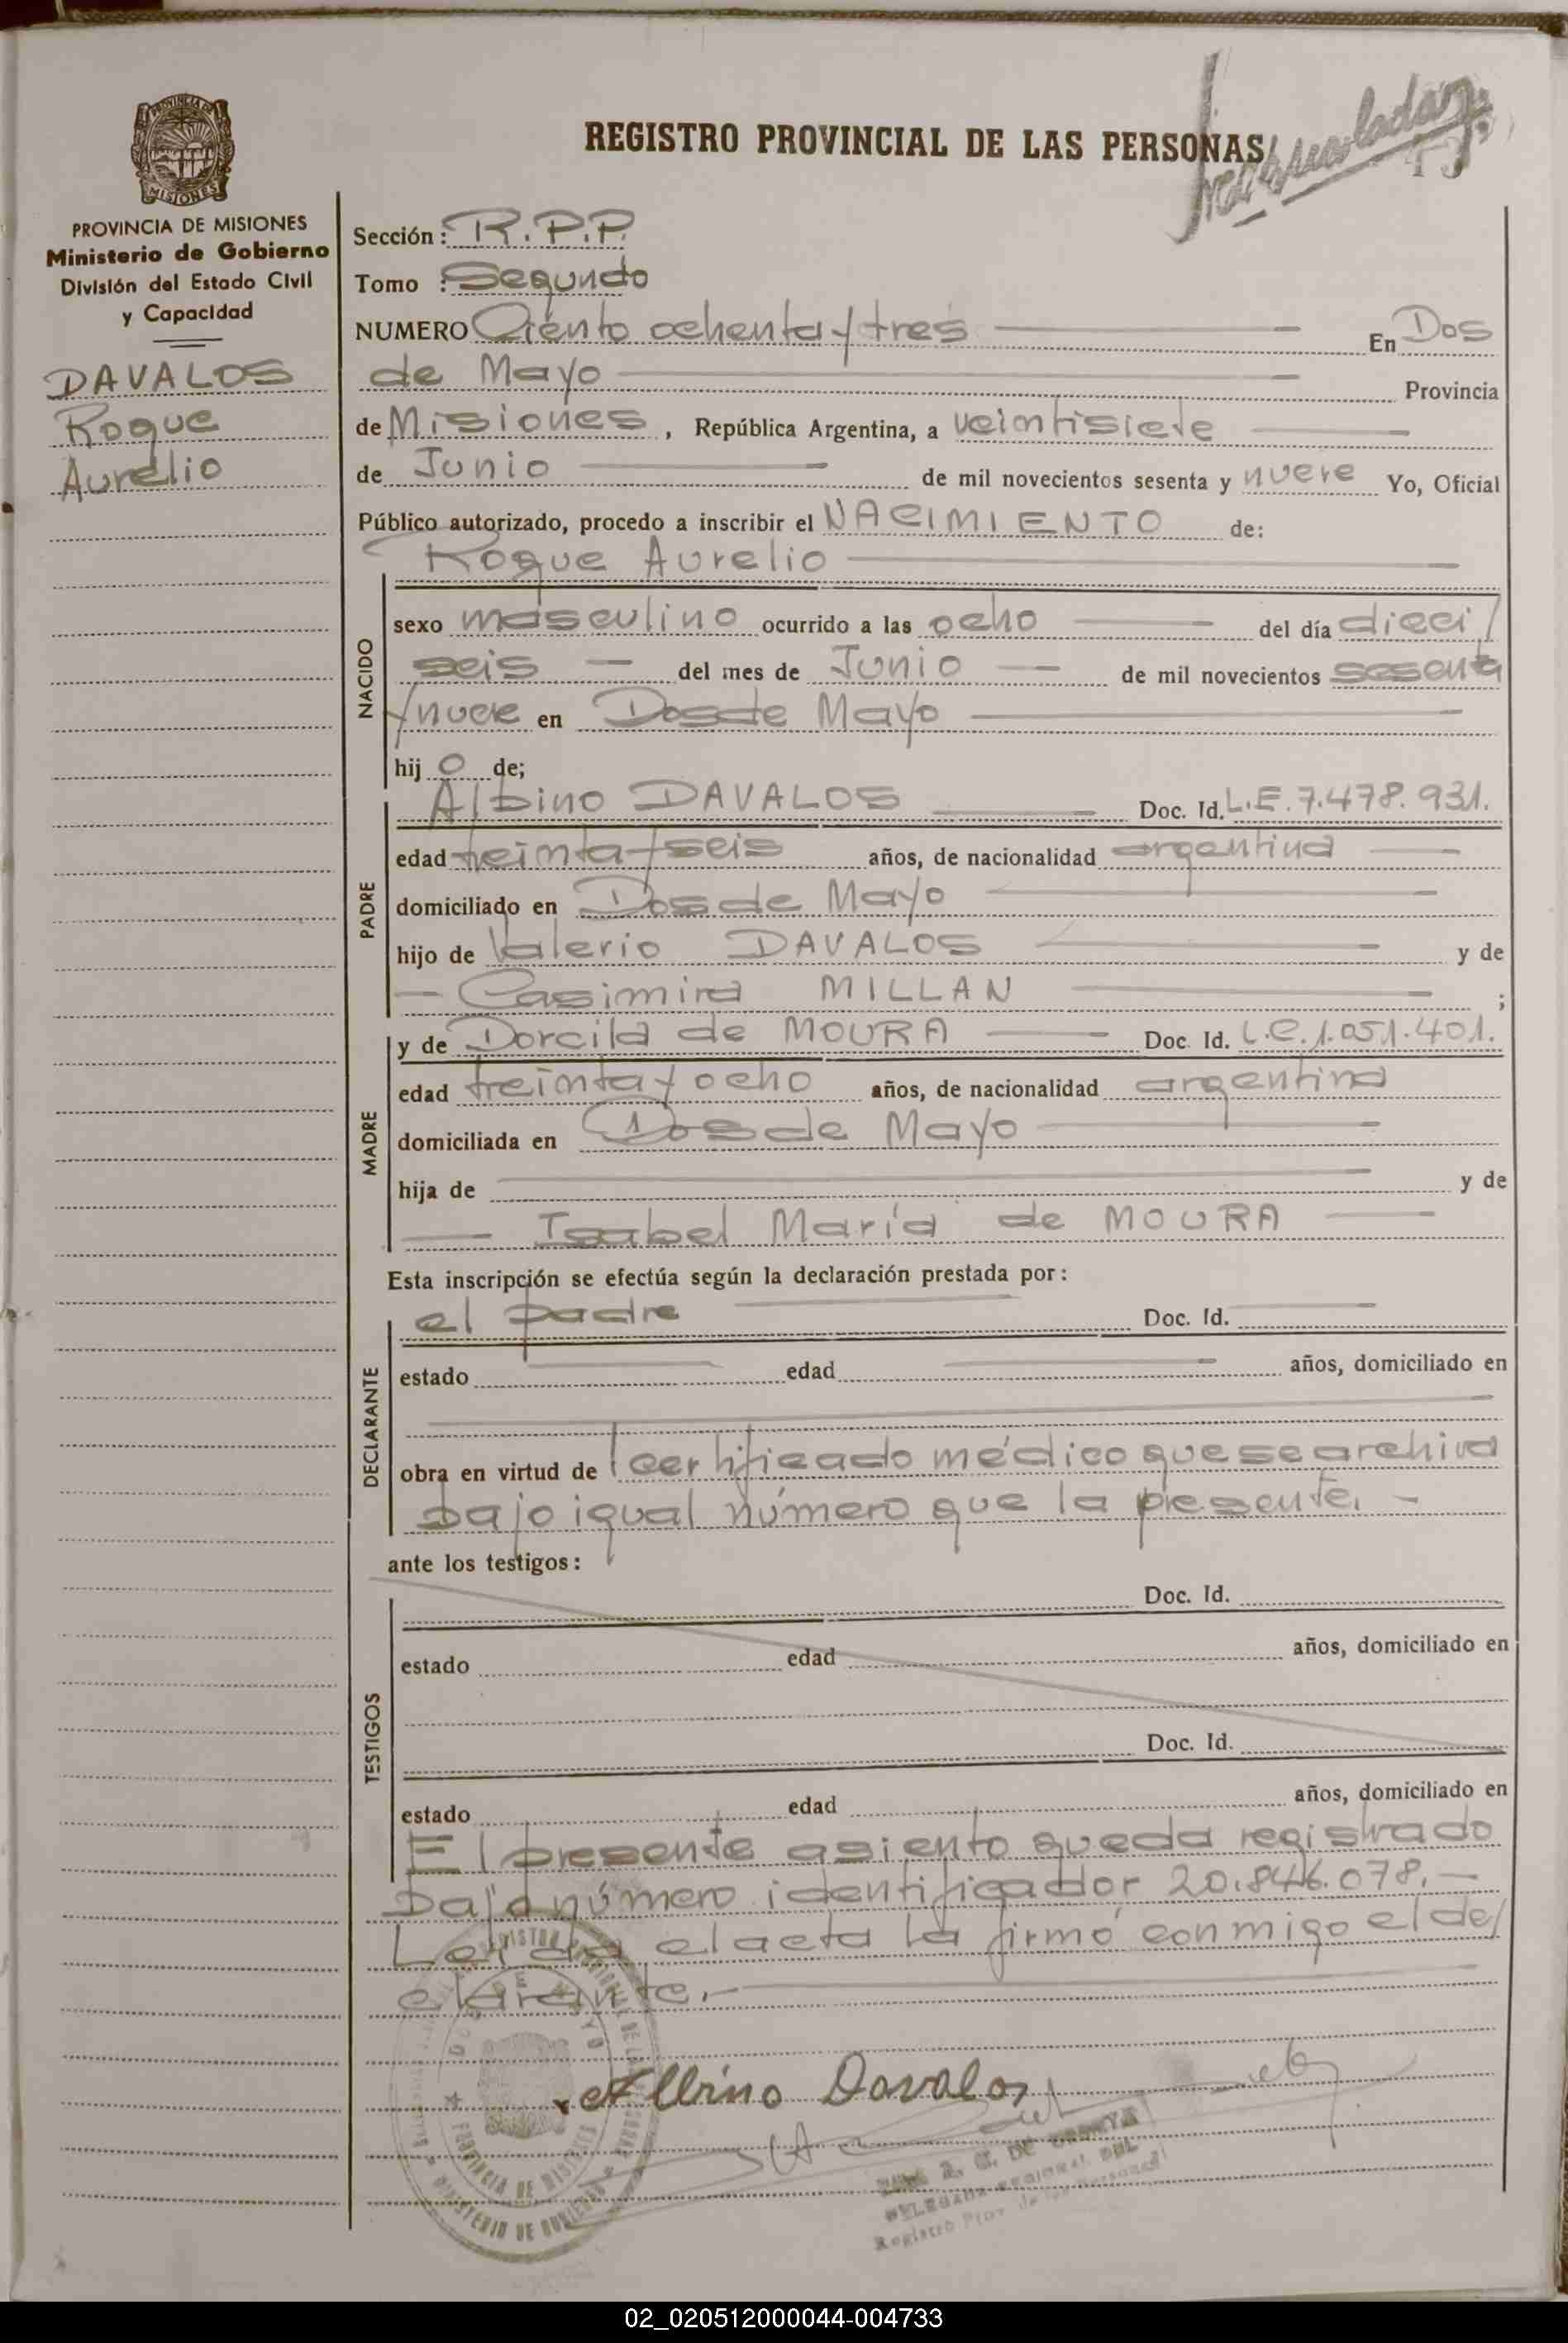 REGISTRO PROVINCIAL DE LAS PERSONAS
PROVINCIA DE
MISIONES
PROVINCIA DE MISIONES
Ministerio de Gobierno
División del Estado Civil
y Capacidad
DAVALOS
Roque
Aurelio
Sección : R.P.P.
Tomo : Segundo
NUMERO Ciento ochenta y tres En Dos
de Mayo Provincia
de Misiones, República Argentina, a veintisiete
de Junio de mil novecientos sesenta y nueve Yo, Oficial
Público autorizado, procedo a inscribir el NACIMIENTO de:
Roque Aurelio
NACIDO
sexo masculino ocurrido a las ocho del día dieci/
seis — del mes de Junio — de mil novecientos sesenta
y nueve en Dos de Mayo
hij o de;
PADRE
Albino DAVALOS Doc. Id. L.E. 7.478.931.
edad treinta y seis años, de nacionalidad argentina
domiciliado en Dos de Mayo
hijo de Valerio DAVALOS y de
— Casimira MILLAN ;
MADRE
y de Dorcila de MOURA Doc. Id. L.C. 1.051.401.
edad treinta y ocho años, de nacionalidad argentina
domiciliada en Dos de Mayo
hija de y de
— Isabel María de MOURA
Esta inscripción se efectúa según la declaración prestada por:
DECLARANTE
el padre Doc. Id.
estado edad años, domiciliado en
obra en virtud de certificado médico que se archiva
bajo igual número que la presente. -
ante los testigos:
TESTIGOS
Doc. Id.
estado edad años, domiciliado en
Doc. Id.
estado edad años, domiciliado en
El presente asiento queda registrado
bajo número identificador 20.846.078. —
Leída el acta la firmó conmigo el de/
clarante. -
Albino Davalos
PROVINCIA DE MISIONES
MINISTERIO DE GOBIERNO
02_020512000044-004733